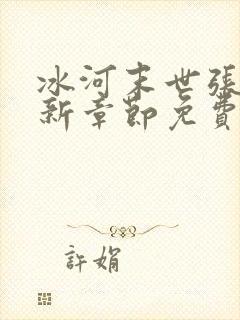 冰河末世張
新章節免費
許娟